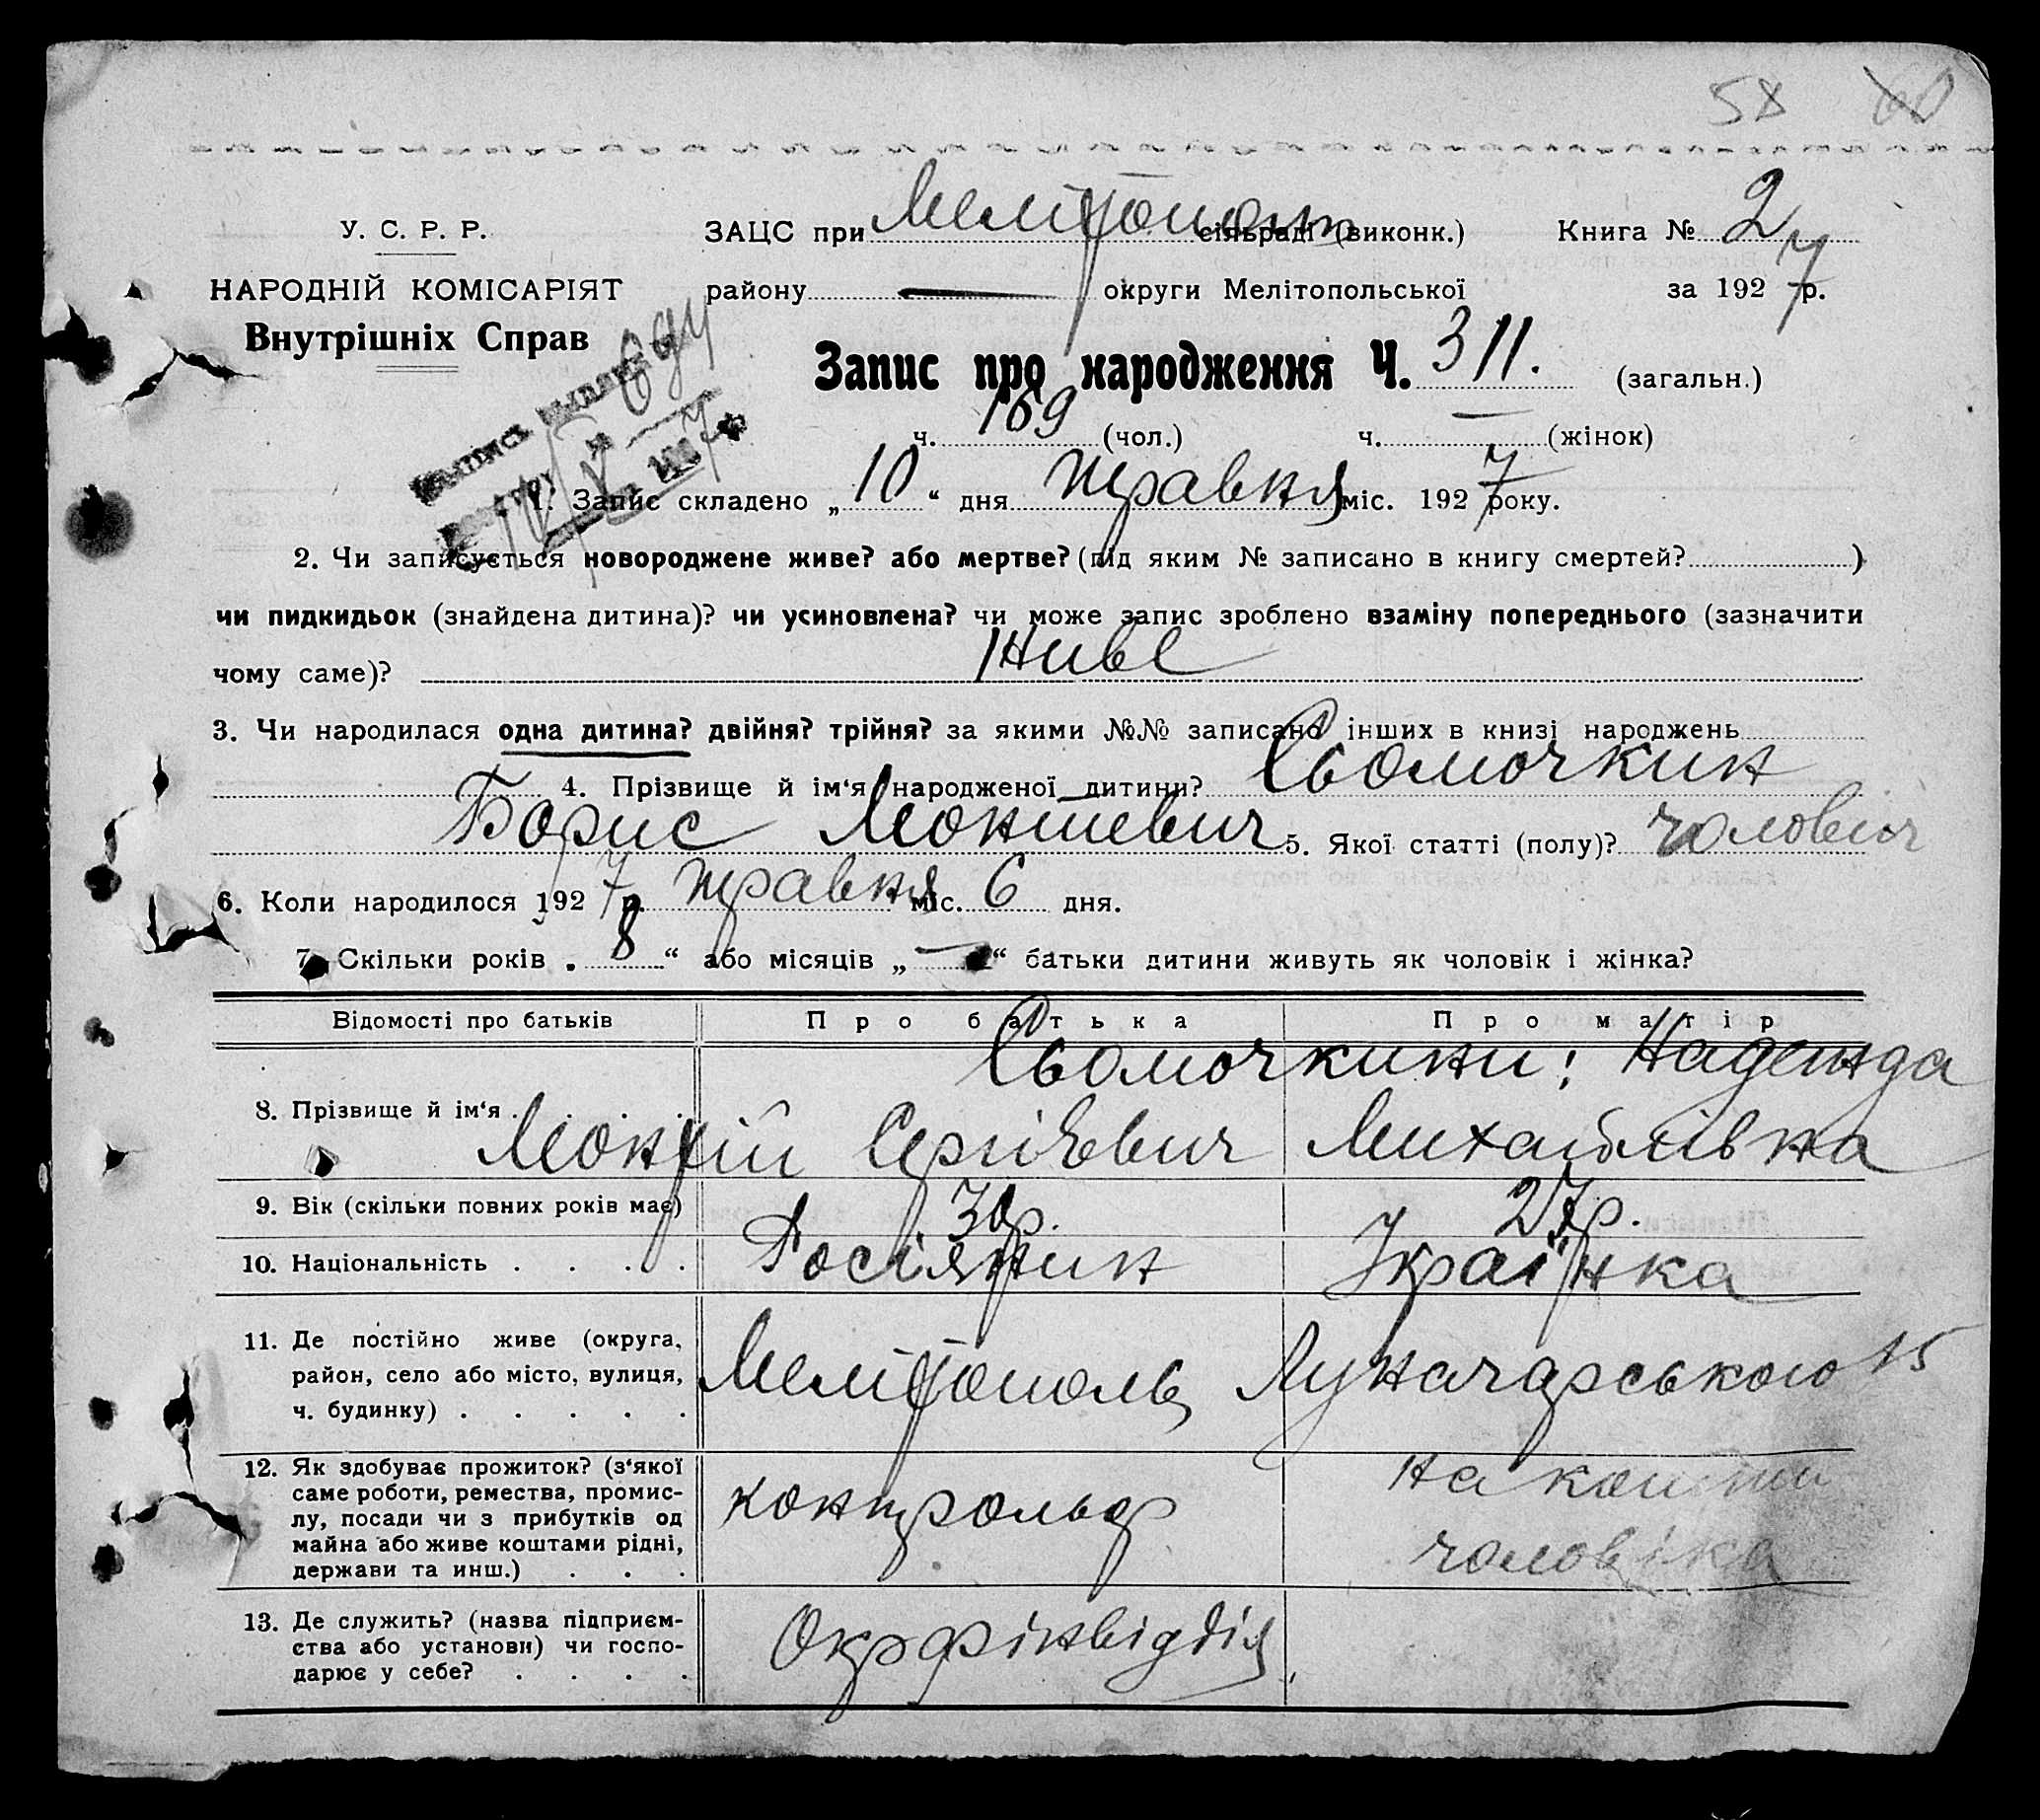 58 60
У. С. Р. Р.
НАРОДНІЙ КОМІСАРІЯТ
Внутрішніх Справ
ЗАЦС при Мелітополь сільраді (виконк.) Книга № 2
району — округи Мелітопольської за 1927 р.
Запис про народження Ч. 311. (загальн.)
ч. 169 (чол.) ч. — (жінок)
1. Запис складено „10“ дня травня міс. 1927 року.
2. Чи записується новороджене живе? або мертве? (під яким № записано в книгу смертей? )
чи пидкидьок (знайдена дитина)? чи усиновлена? чи може запис зроблено взаміну попереднього (зазначити
чому саме)? Живе
3. Чи народилася одна дитина? двійня? трійня? за якими №№ записано інших в книзі народжень
4. Прізвище й ім‘я народженої дитини? Сьомочкин
Борис 5. Якої статті (полу)? чоловіч
6. Коли народилося 1927 р. травня міс. 6 дня.
7. Скільки років „8“ або місяців „—“ батьки дитини живуть як чоловік і жінка?
Відомості про батьків Про батька Про матір
Сьомочкини: Надежда
8. Прізвище й ім‘я . . . . Сергієвич Михайлівна
9. Вік (скільки повних років має) 30р. 27р.
10. Національність . . . . Росіянин Українка
11. Де постійно живе (округа,
район, село або місто, вулиця,
ч. будинку) . . . . . Мелітополь, Луначарського 15
12. Як здобуває прожиток? (з‘якої
саме роботи, ремества, промис-
лу, посади чи з прибутків од
майна або живе коштами рідні,
держави та инш.) . . .
контрольор
на кошти
чоловіка
13. Де служить? (назва підприєм-
ства або установи) чи госпо-
дарює у себе? . . . .
Окрфінвідділ